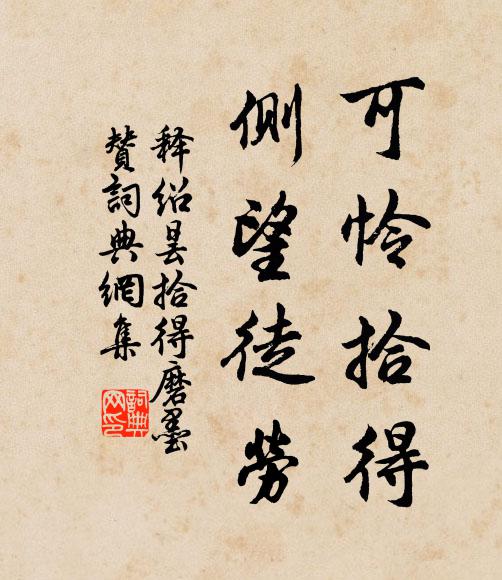 可怜拾得
侧望徒劳
释绍昙拾得磨墨
赞词典网集
词典
网印